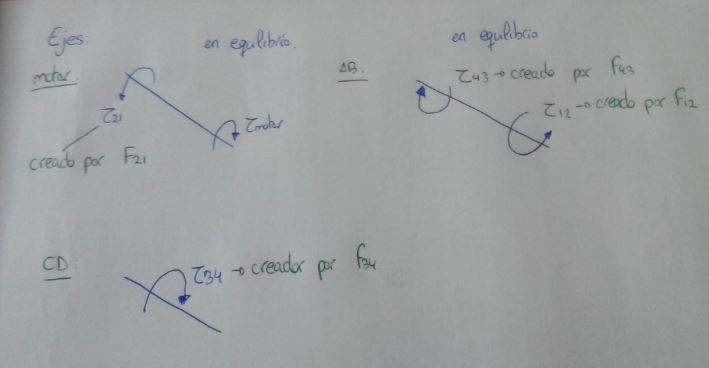 Ejes:
en equilibrio.
motor:
τ21
τmotor
creado por F21
en equilibrio
AB:
τ43 → creado por f43
τ12 → creado por f12
CD:
τ34 → creador por f34